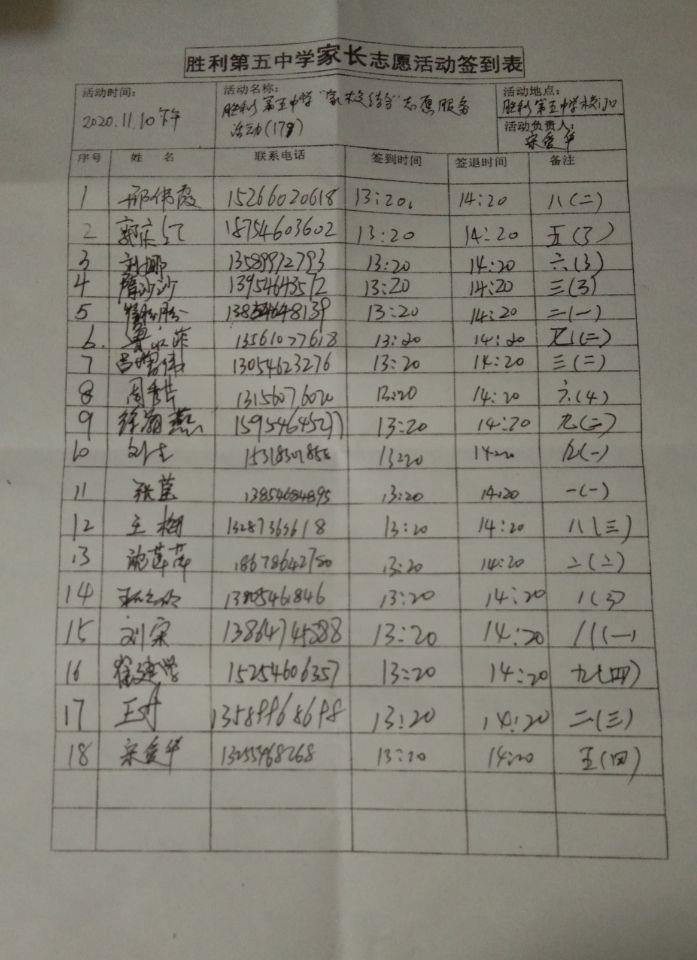 胜利第五中学家长志愿活动签到表
活动时间: 2020.11.10下午
活动名称: 胜利第五中学"家校结合"志愿服务活动(17周)
活动地点: 胜利第五中学校门口
活动负责人: 宋爱华
序号 姓名 联系电话 签到时间 签退时间 备注
1 邢伟霞 15266020618 13:20 14:20 八(二)
2 18754603602 13:20 14:20 五(3)
3 刘娜 13589972793 13:20 14:20 六(3)
4 隋沙沙 13954643512 13:20 14:20 三(3)
5 13854648139 13:20 14:20 二(一)
6. 13561077618 13:20 14:20 九(二)
7 吕增伟 13054623276 13:20 14:20 三(二)
8 周秀芹 1315607602 13:20 14:20 六(4)
9 徐翠燕 15954645277 13:20 14:20 九(二)
10 13:20 14:20 九(一)
11 张莹 13854684895 13:20 14:20 一(一)
12 王栩 13287365618 13:20 14:20 八(三)
13 莲萍 18678642750 13:20 14:20 二(二)
14 1385461846 13:20 14:20 八(3)
15 刘荣 13864745288 13:20 14:20 八(一)
16 徐建学 15254606357 13:20 14:20 九(四)
17 王丹 13589968698 13:20 14:20 二(三)
18 宋爱华 13255468268 13:20 14:20 五(四)